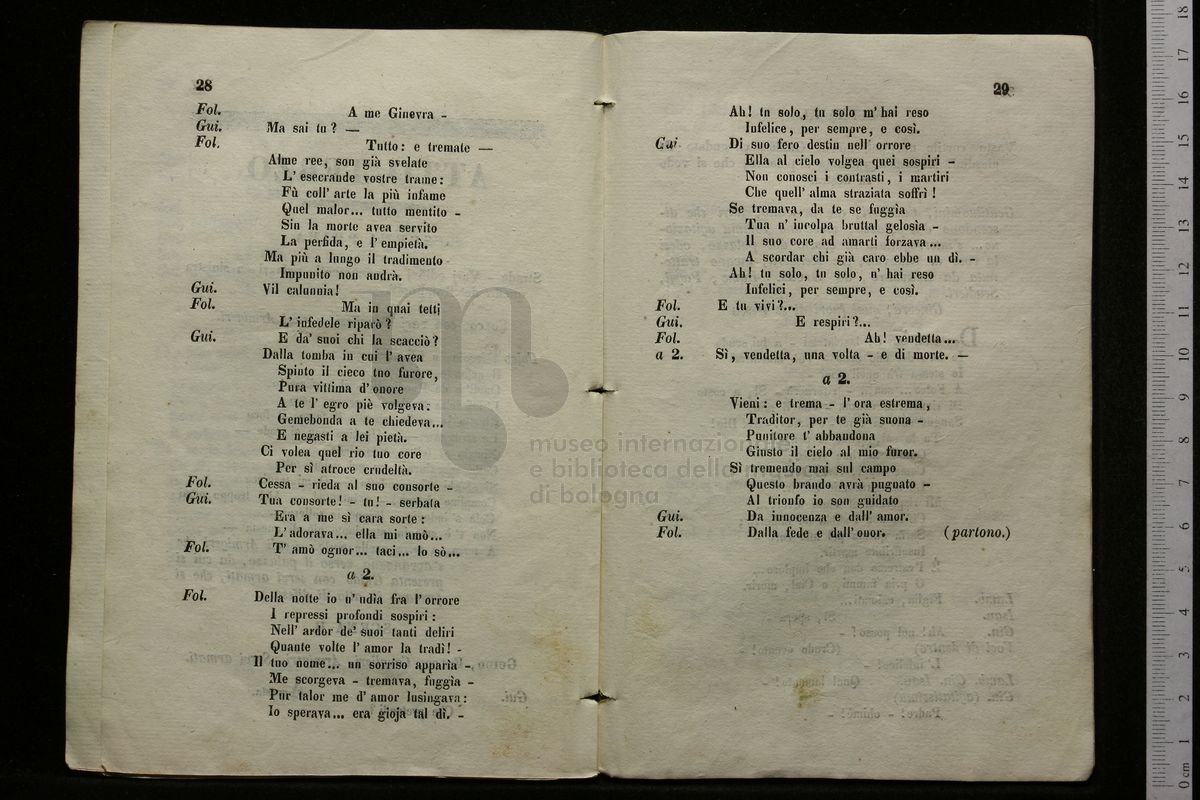 28
Fol. A me Ginevra -
Gui. Ma sai tu? —
Fol. Tutto: e tremate —
Alme ree, son già svelate
L' esecrande vostre trame:
Fù coll' arte la più infame
Quel malor... tutto mentito -
Sin la morte avea servito
La perfida, e l' empietà.
Ma più a lungo il tradimento
Impunito non andrà.
Gui. Vil calunnia!
Fol. Ma in quai tetti
L' infedele riparò?
Gui. E da' suoi chi la scacciò?
Dalla tomba in cui l' avea
Spinto il cieco tuo furore,
Pura vittima d' onore
A te l' egro piè volgeva:
Gemebonda a te chiedeva...
E negasti a lei pietà.
Ci volea quel rio tuo core
Per sì atroce crudeltà.
Fol. Cessa - rieda al suo consorte -
Gui. Tua consorte! - tu! - serbata
Era a me sì cara sorte:
L' adorava... ella mi amò...
Fol. T' amò ognor... taci... lo sò...
a 2.
Fol. Della notte io n' udìa fra l' orrore
I repressi profondi sospiri:
Nell' ardor de' suoi tanti deliri
Quante volte l' amor la tradì! -
Il tuo nome... un sorriso apparìa -
Me scorgeva - tremava, fuggìa -
Pur talor me d' amor lusingava:
Io sperava... era gioja tal dì. -
29
Ah! tu solo, tu solo m' hai reso
Infelice, per sempre, e così.
Gui. Di suo fero destin nell' orrore
Ella al cielo volgea quei sospiri -
Non conosci i contrasti, i martiri
Che quell' alma straziata soffrì!
Se tremava, da te se fuggìa
Tua n' incolpa bruttal gelosìa -
Il suo core ad amarti forzava...
A scordar chi già caro ebbe un dì. -
Ah! tu solo, tu solo, n' hai reso
Infelici, per sempre, e così.
Fol. E tu vivi?...
Gui. E respiri?...
Fol. Ah! vendetta...
a 2. Sì, vendetta, una volta - e di morte. —
a 2.
Vieni: e trema - l' ora estrema,
Traditor, per te già suona -
Punitore t' abbandona
Giusto il cielo al mio furor.
Sì tremendo mai sul campo
Questo brando avrà pugnato -
Al trionfo io son guidato
Gui. Da innocenza e dall' amor.
Fol. Dalla fede e dall' onor. (partono.)
museo internazionale
e biblioteca della musica
di bologna